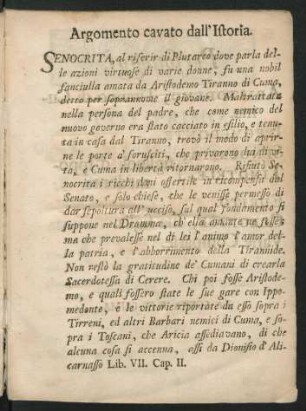 Argomento cavato dall'Istoria.
SENOCRITA, al riferir di Plutarco dove parla del-
le azioni virtuose di varie donne, fu una nobil
fanciulla amata da Aristodemo Tiranno di Cuma,
detto per soprannome il giovane. Maltrattata
nella persona del padre, che come nemico del
nuovo governo era stato cacciato in esilio, e tenu-
ta in casa dal Tiranno, trovò il modo di aprir-
ne le porte a' forusciti, che privarono
e Cuma in libertà ritornarono. Rifiutò Se-
nocrita i ricchi doni offertile in ricompensa dal
Senato, e solo chiese, che le venisse permesso di
dar sepoltura all' ucciso, sul qual fondamento si
suppone nel Dramma, ch' ella amante ne fosse,
ma che prevalesse nel di lei l'animo l'amor del-
la patria, e l'abborrimento della Tirannide.
Non restò la gratitudine de' Cumani di crearla
Sacerdotessa di Cerere. Chi poi fosse Aristode-
mo, e quali fossero state le sue gare con Ippo-
medonte, e le vittorie riportate da esso sopra i
Tirreni, ed altri Barbari nemici di Cuma, e so-
pra i Toscani, che Aricia assediavano, di che
alcuna cosa si accenna, essi da Dionisio d' Ali-
carnasso Lib. VII. Cap. II.